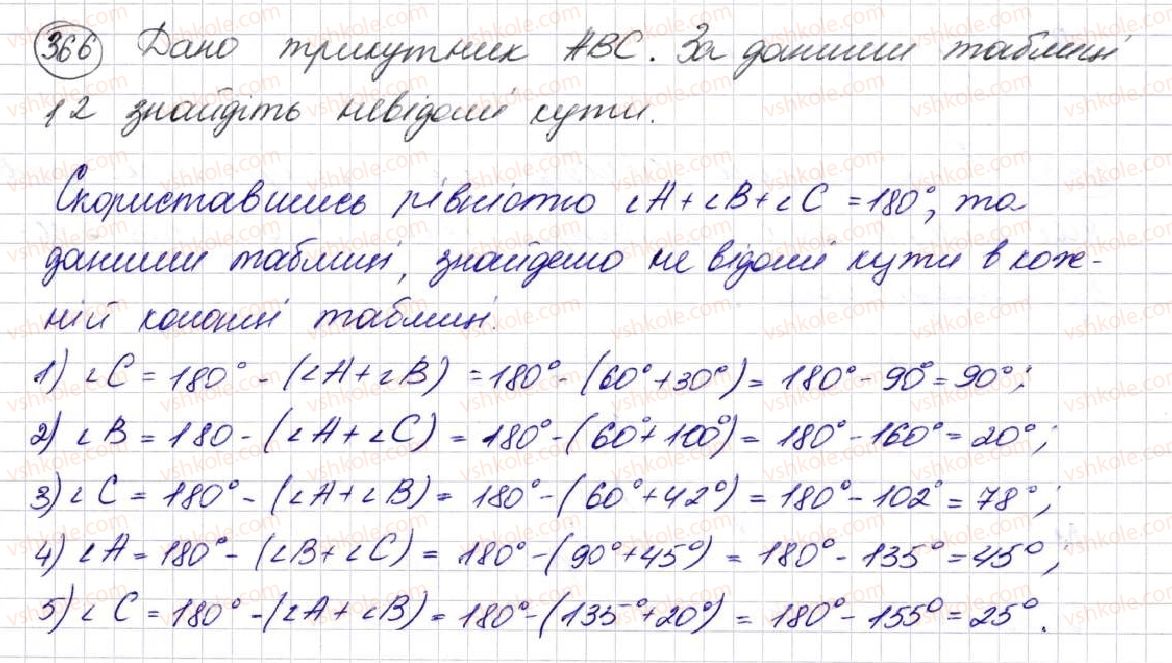 366 Дано трикутник ABC. За даними таблиці
12 знайдіть невідомі кути.
Скориставшись рівністю ∠A+∠B+∠C=180°, та
даними таблиці, знайдемо не відомі кути в кож-
ній колонці таблиці.
1) ∠C = 180° - (∠A+∠B) = 180° - (60°+30°) = 180° - 90° = 90°;
2) ∠B = 180 - (∠A+∠C) = 180° - (60°+100°) = 180° - 160° = 20°;
3) ∠C = 180° - (∠A+∠B) = 180° - (60°+42°) = 180° - 102° = 78°;
4) ∠A = 180° - (∠B+∠C) = 180° - (90°+45°) = 180° - 135° = 45°;
5) ∠C = 180° - (∠A+∠B) = 180° - (135°+20°) = 180° - 155° = 25°.